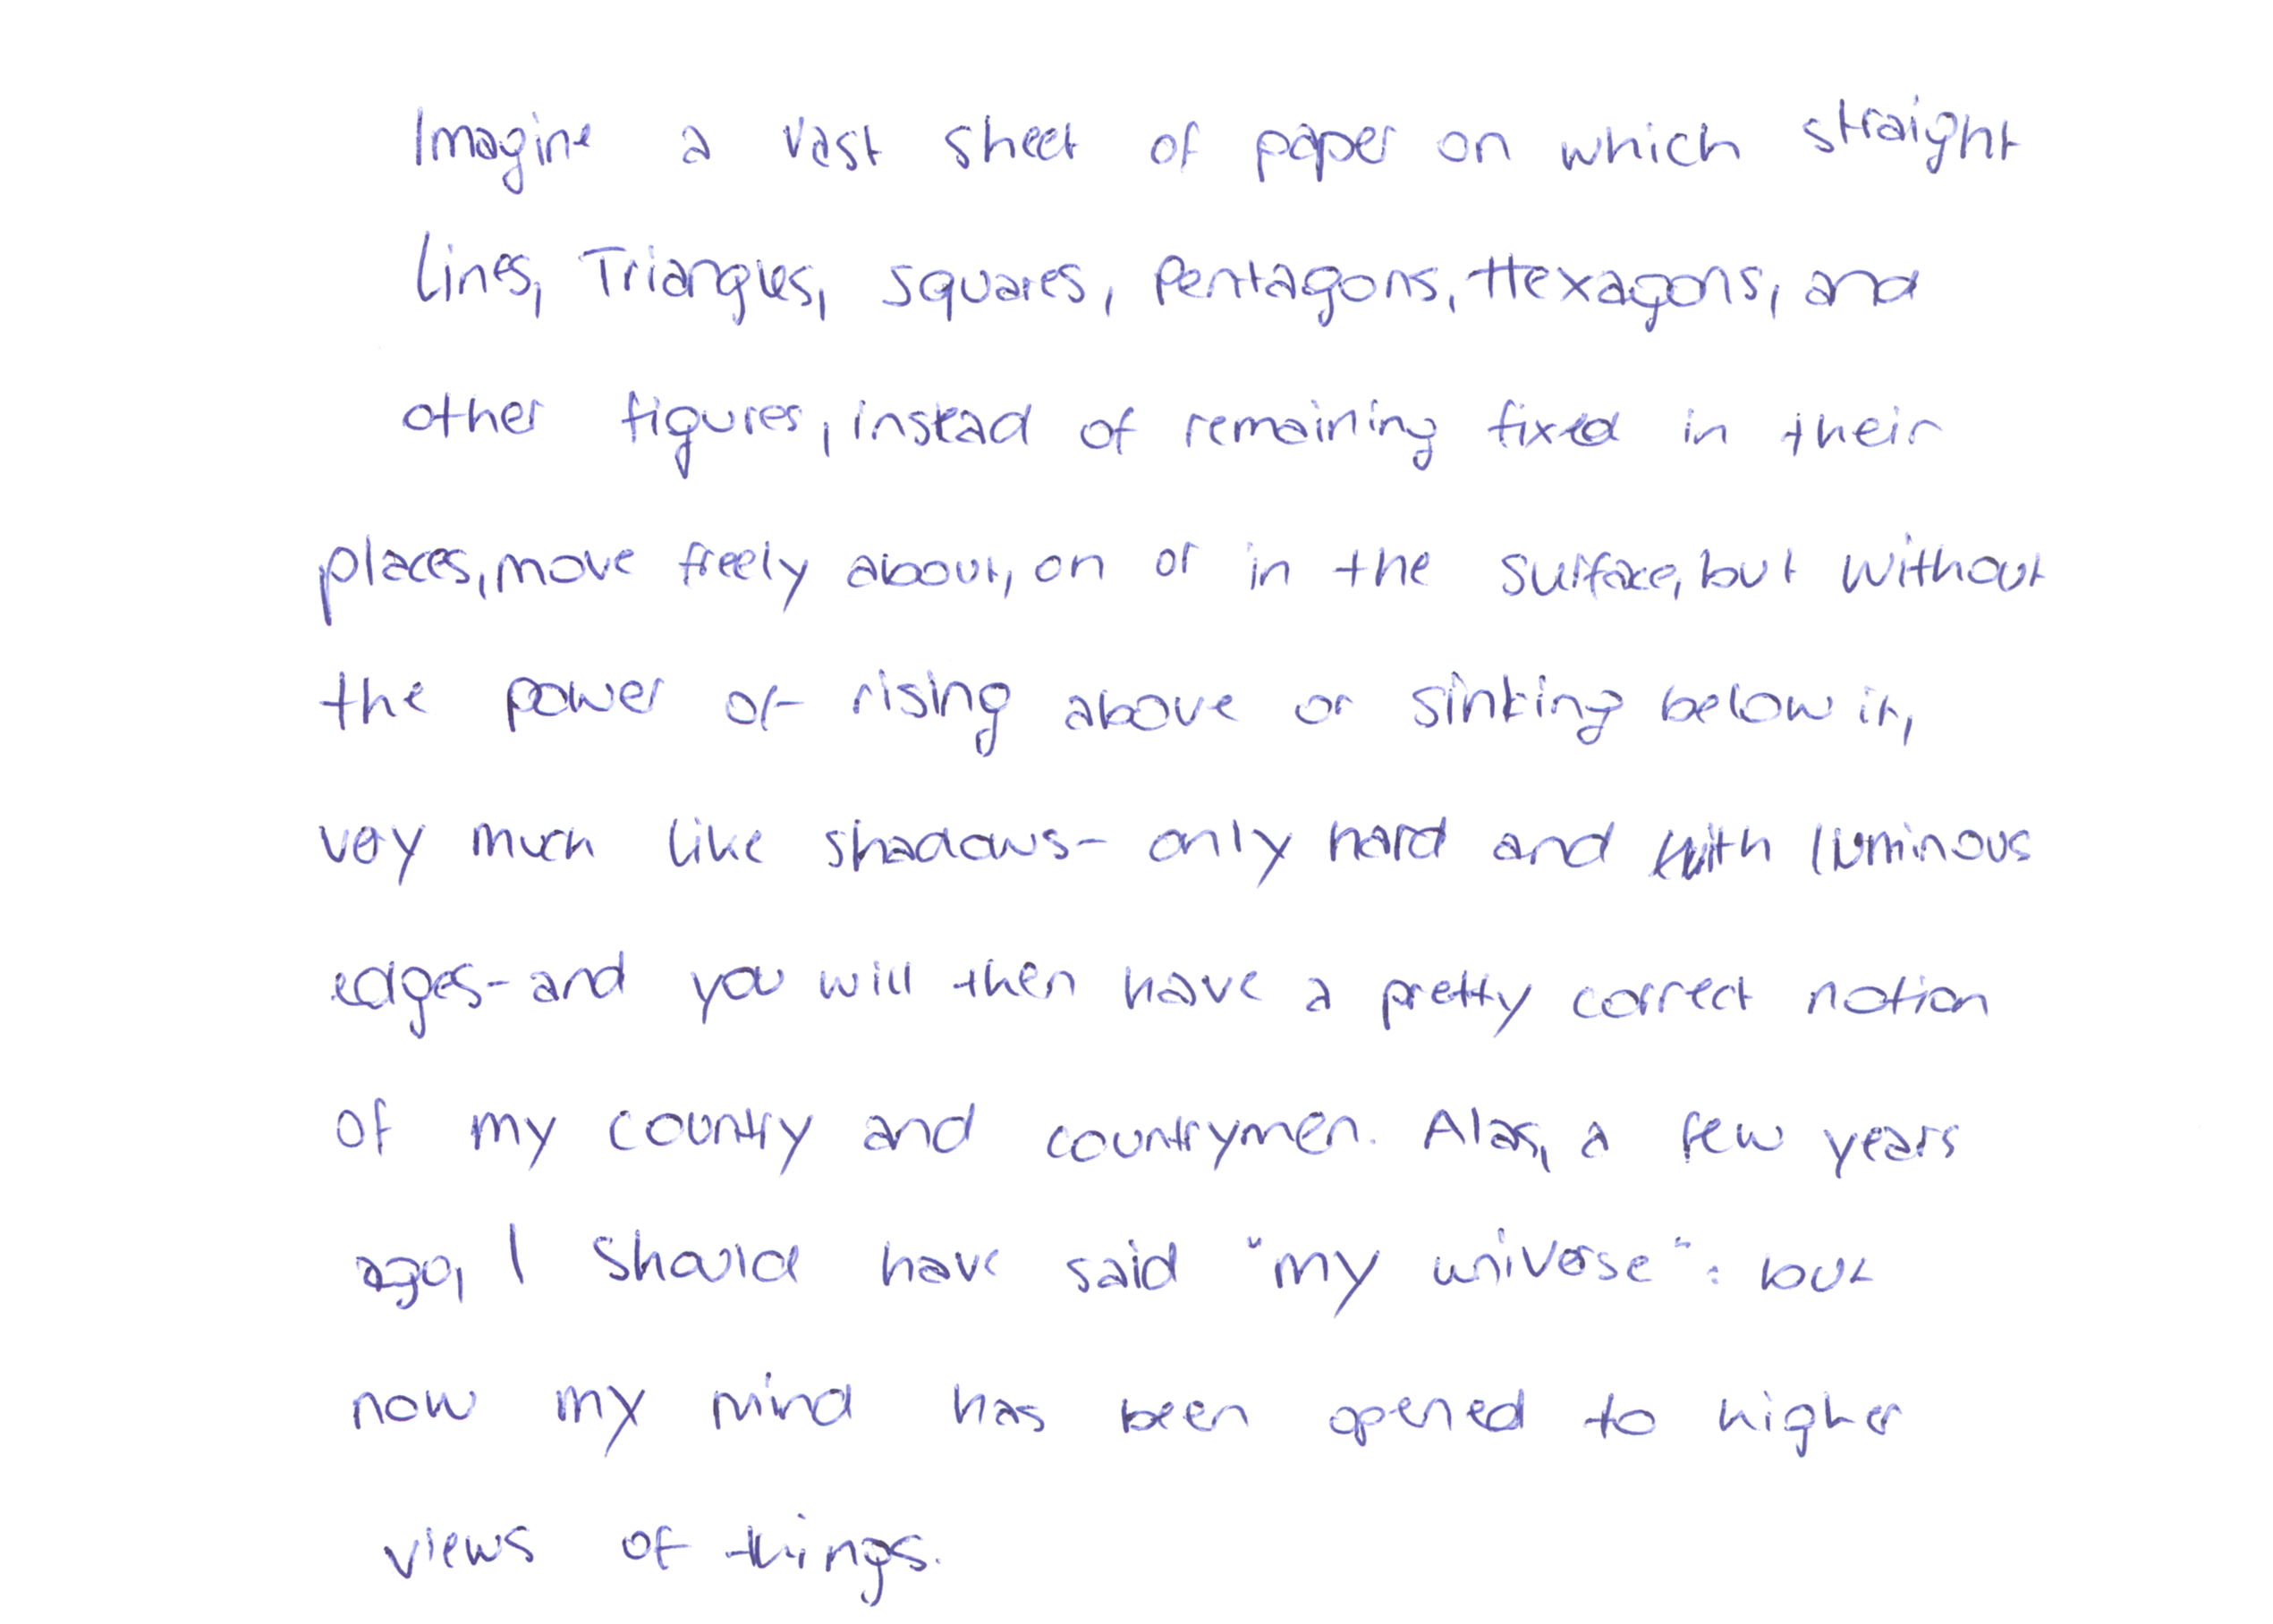 Imagine a vast sheet of paper on which straight
Lines, Triangles, Squares, Pentagons, Hexagons, and
other figures, instead of remaining fixed in their
places, move freely about, on or in the surface, but without
the power of rising above or sinking below it,
very much like shadows - only hard and with luminous
edges - and you will then have a pretty correct notion
of my country and countrymen. Alas, a few years
ago, I should have said "my universe": but
now my mind has been opened to higher
views of things.